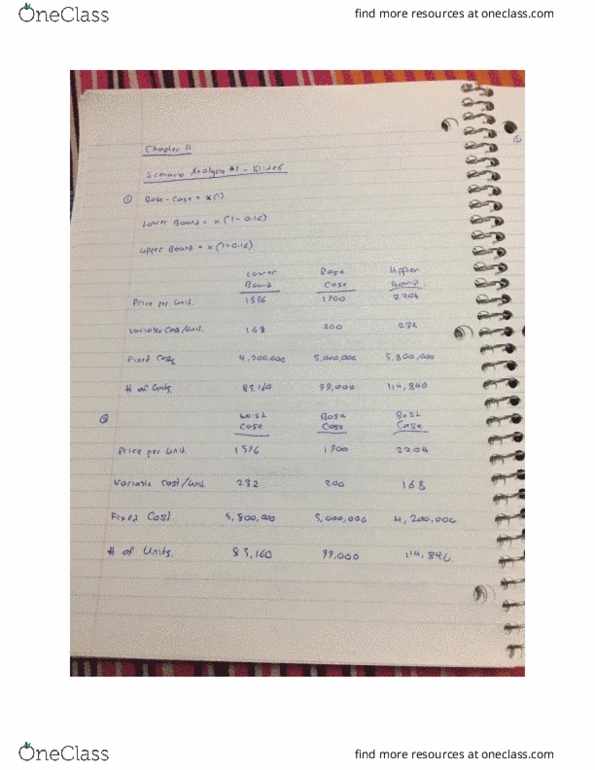 OneClass
find more resources at oneclass.com
Chapter 11
Scenario Analysis #1 - Slide 6
① Base - Case = x(1)
Lower Bound = x (1 - 0.16)
Upper Bound = x (1+0.16)
Lower Base Upper
Bound Case Bound
Price per Unit. 1596 1900 2204
Variable Cost/Unit. 168 200 232
Fixed Costs 4,200,000 5,000,000 5,800,000
# of Units 83,160 99,000 114,840
② Worst Base Best
Case Case Case
Price per Unit 1596 1900 2204
Variable Cost/Unit. 232 200 168
Fixed Cost. 5,800,000 5,000,000 4,200,000
# of Units. 83,160 99,000 114,840.
OneClass
find more resources at oneclass.com